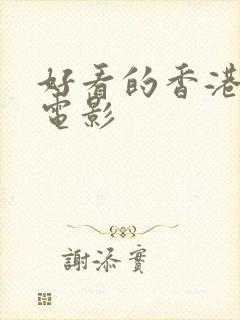 好看的香港
電影
謝添實